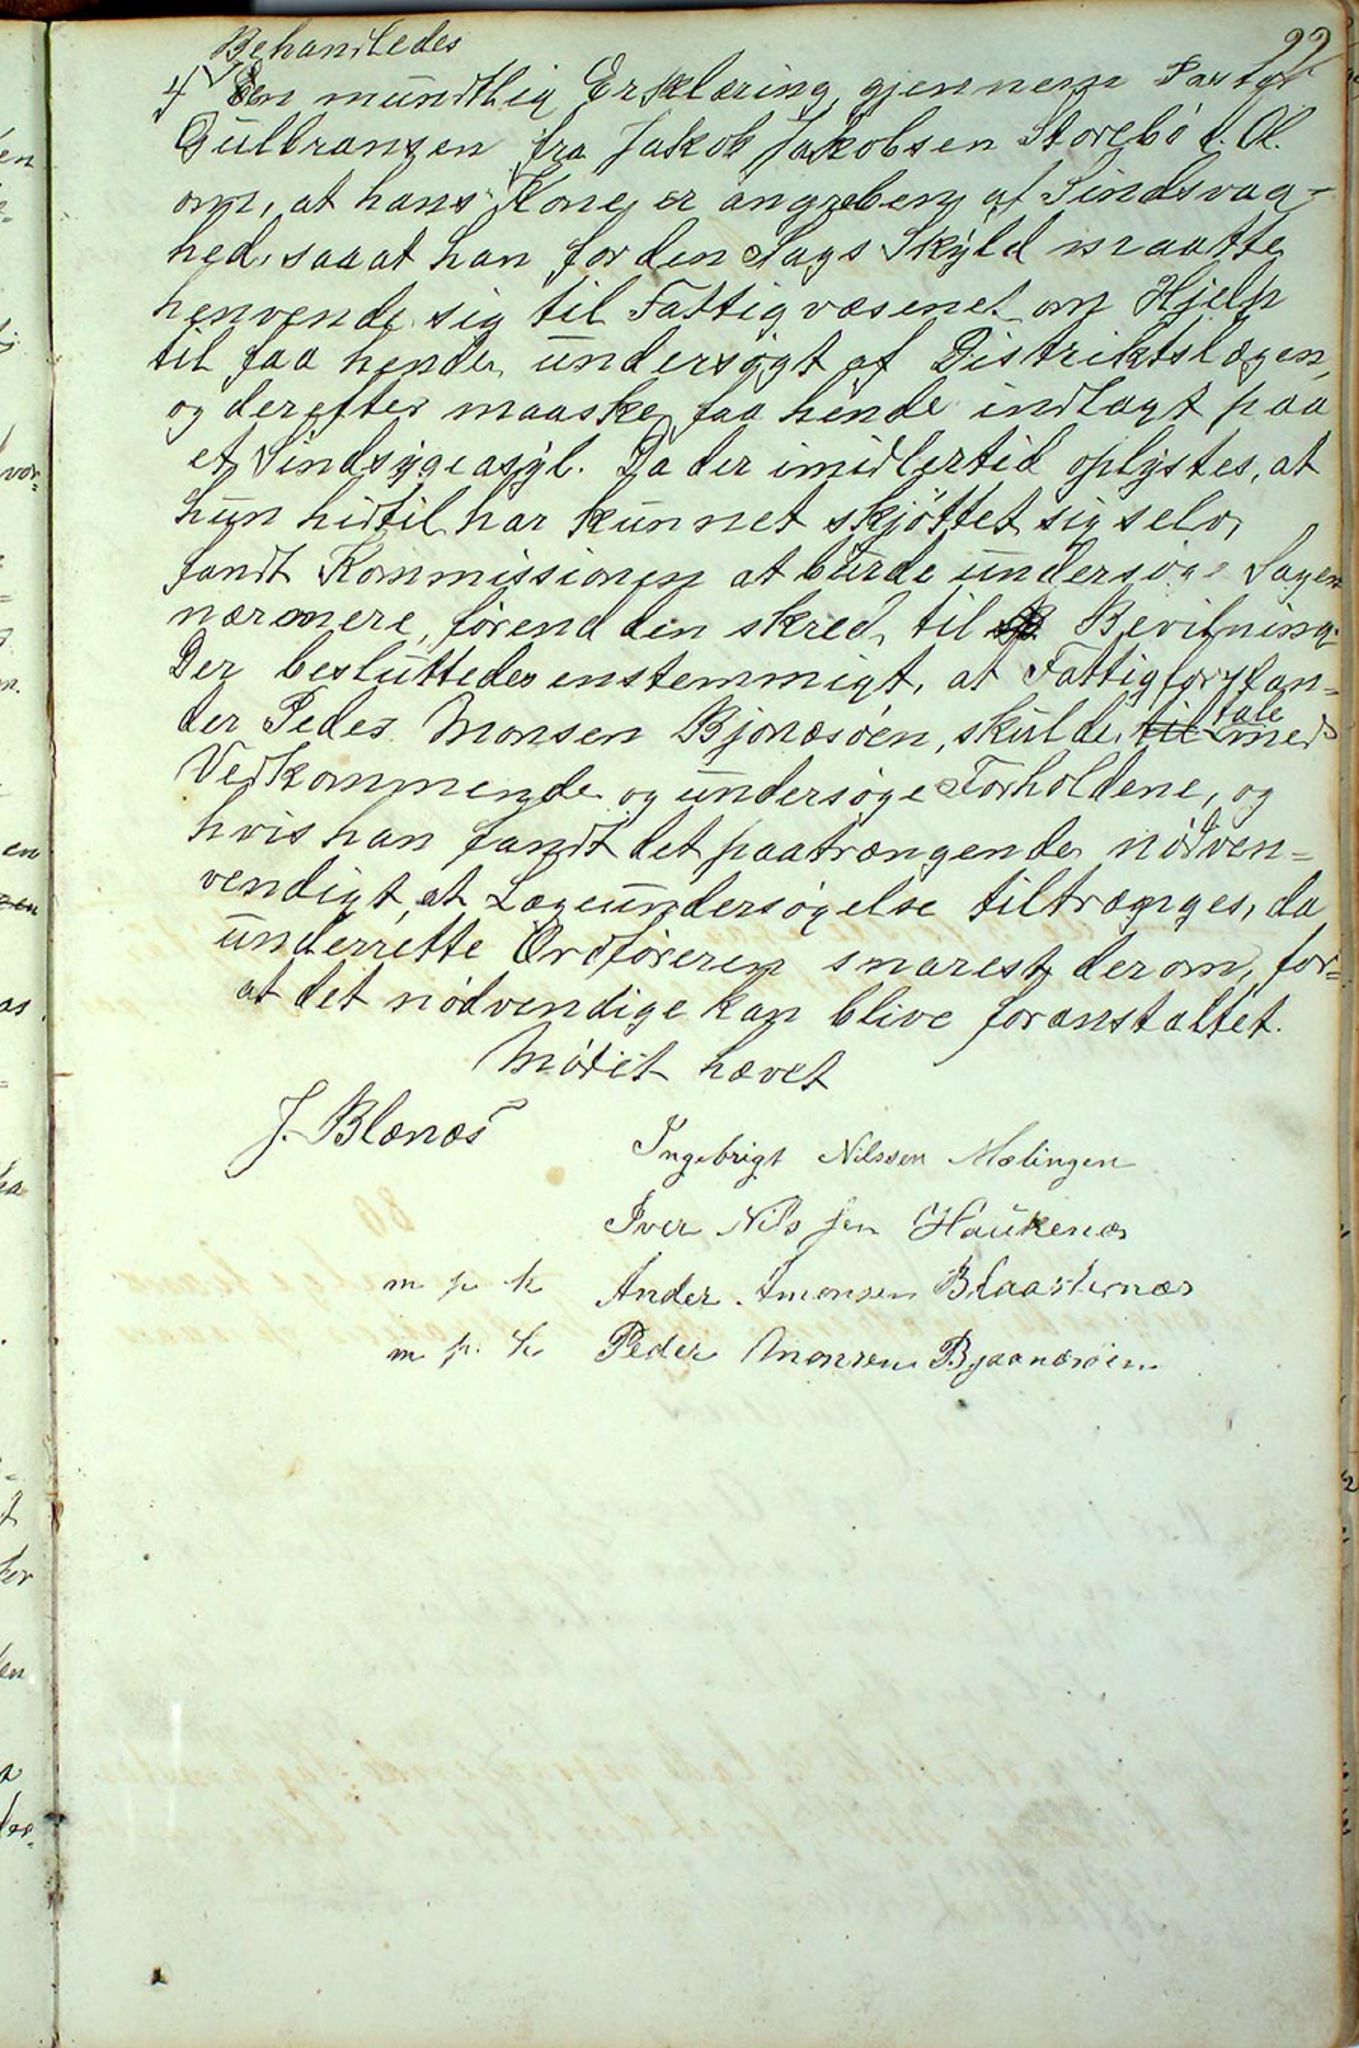 22
Behandledes
4 En mundtlig Erklæring gjennem Pastor
Gulbransen fra Jakob Jakobsen Storebö d. Æ.
om, at hans Kone er angreben af Sindsvag-
hed, saaat han for den Sags Skyld maatte
henvende sig til Fattigvæsenet om Hjelp
til faa hende undersøgt af Distriktslægen,
og derefter maaske faa hende indlagt paa
et Sindsygeasyl. Da der imidlertid oplystes, at
hun hidtil har kunnet skjöttet sig selv,
fandt Kommissionen at burde undersöge Sagen
nærmere, förend den skred til Bevilning.
Der besluttedes enstemmigt, at Fattigforstan=
der Peder Monsen Bjonæsöen, skulde til tale med
Vedkommende og undersöge Forholdene, og
hvis han fandt det paatrængende nödven=
vendigt, at Lægeundersøgelse tiltrænges, da
underrette Ordföreren snarest derom, for=
at det nödvendige kan blive foranstaltet.
Mödet hævet
J. Blænæs
Ingebrigt Nilssen Mælingen
Iver Nilssen Haukenæs
m p k Ander Amonsen Blaasternæs
m p. k Peder Monsen Bjaanæsöen